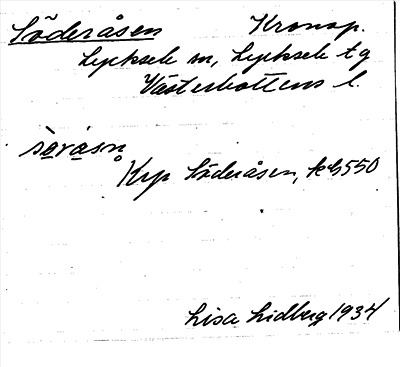 Söderåsen Kronop.
Lycksele sn, Lycksele tg
Västerbottens l.
Krp Söderåsen, kb 550
Lisa Lidberg 1934